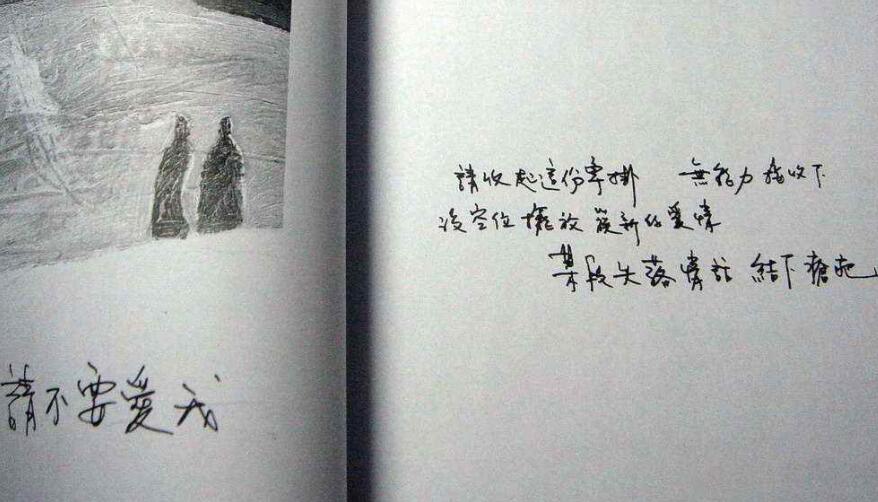 請不要愛我
請收起這份牽掛　無能力我收下
沒空位擺放簇新的愛情
某段失落情話 結下瘡疤